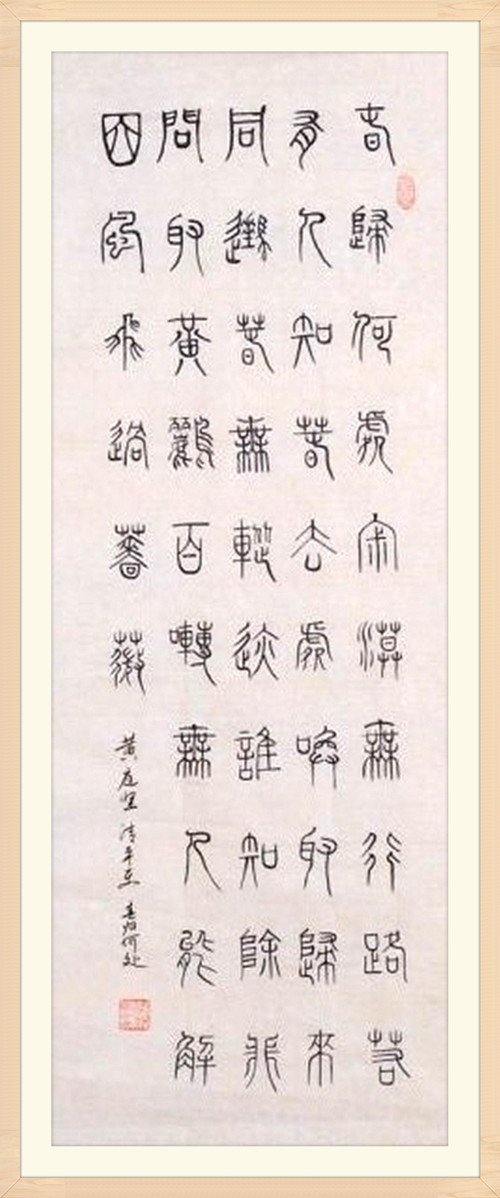 春歸何處寂漠無行路若
有人知春去處喚取歸來
同春無蹤迹誰知除非
問取黃鸝百囀無人能解
因風飛過薔薇
黄庭坚 清平乐 春归何处